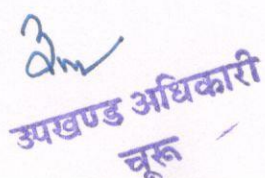 उपखण्ड अधिकारी
चूरू